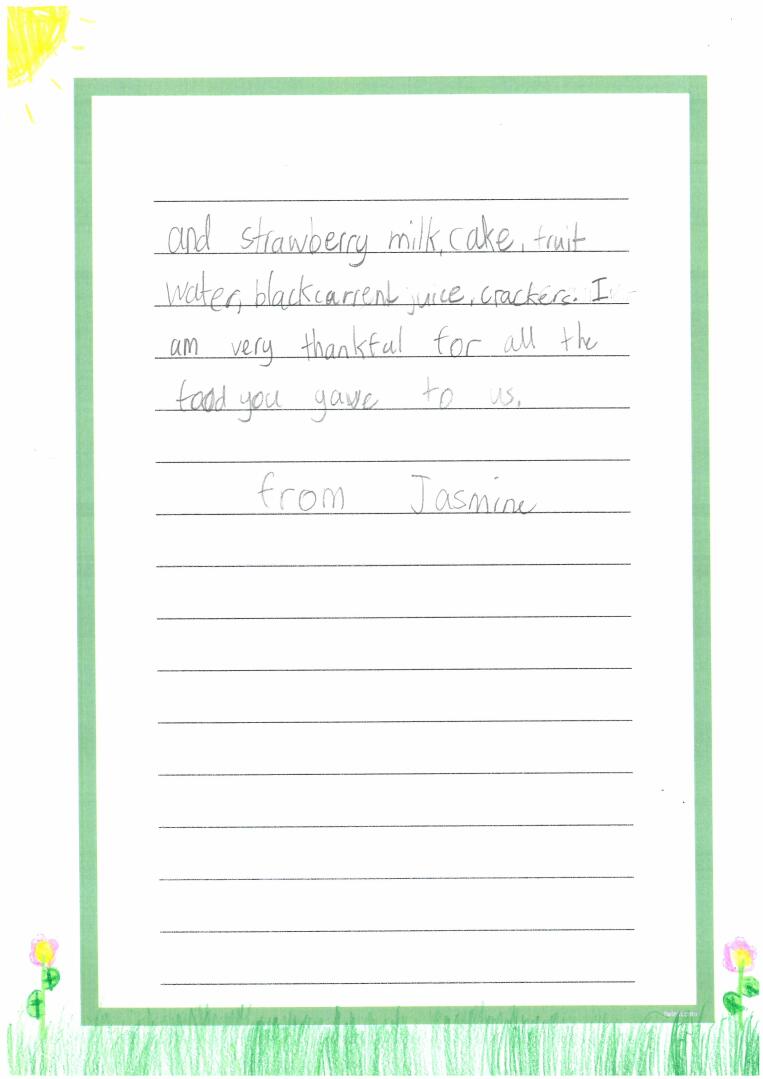 and strawberry milk, cake, fruit
water, blackcarrent juice, crackers. I
am very thankful for all the
food you gave to us.
from Jasmine